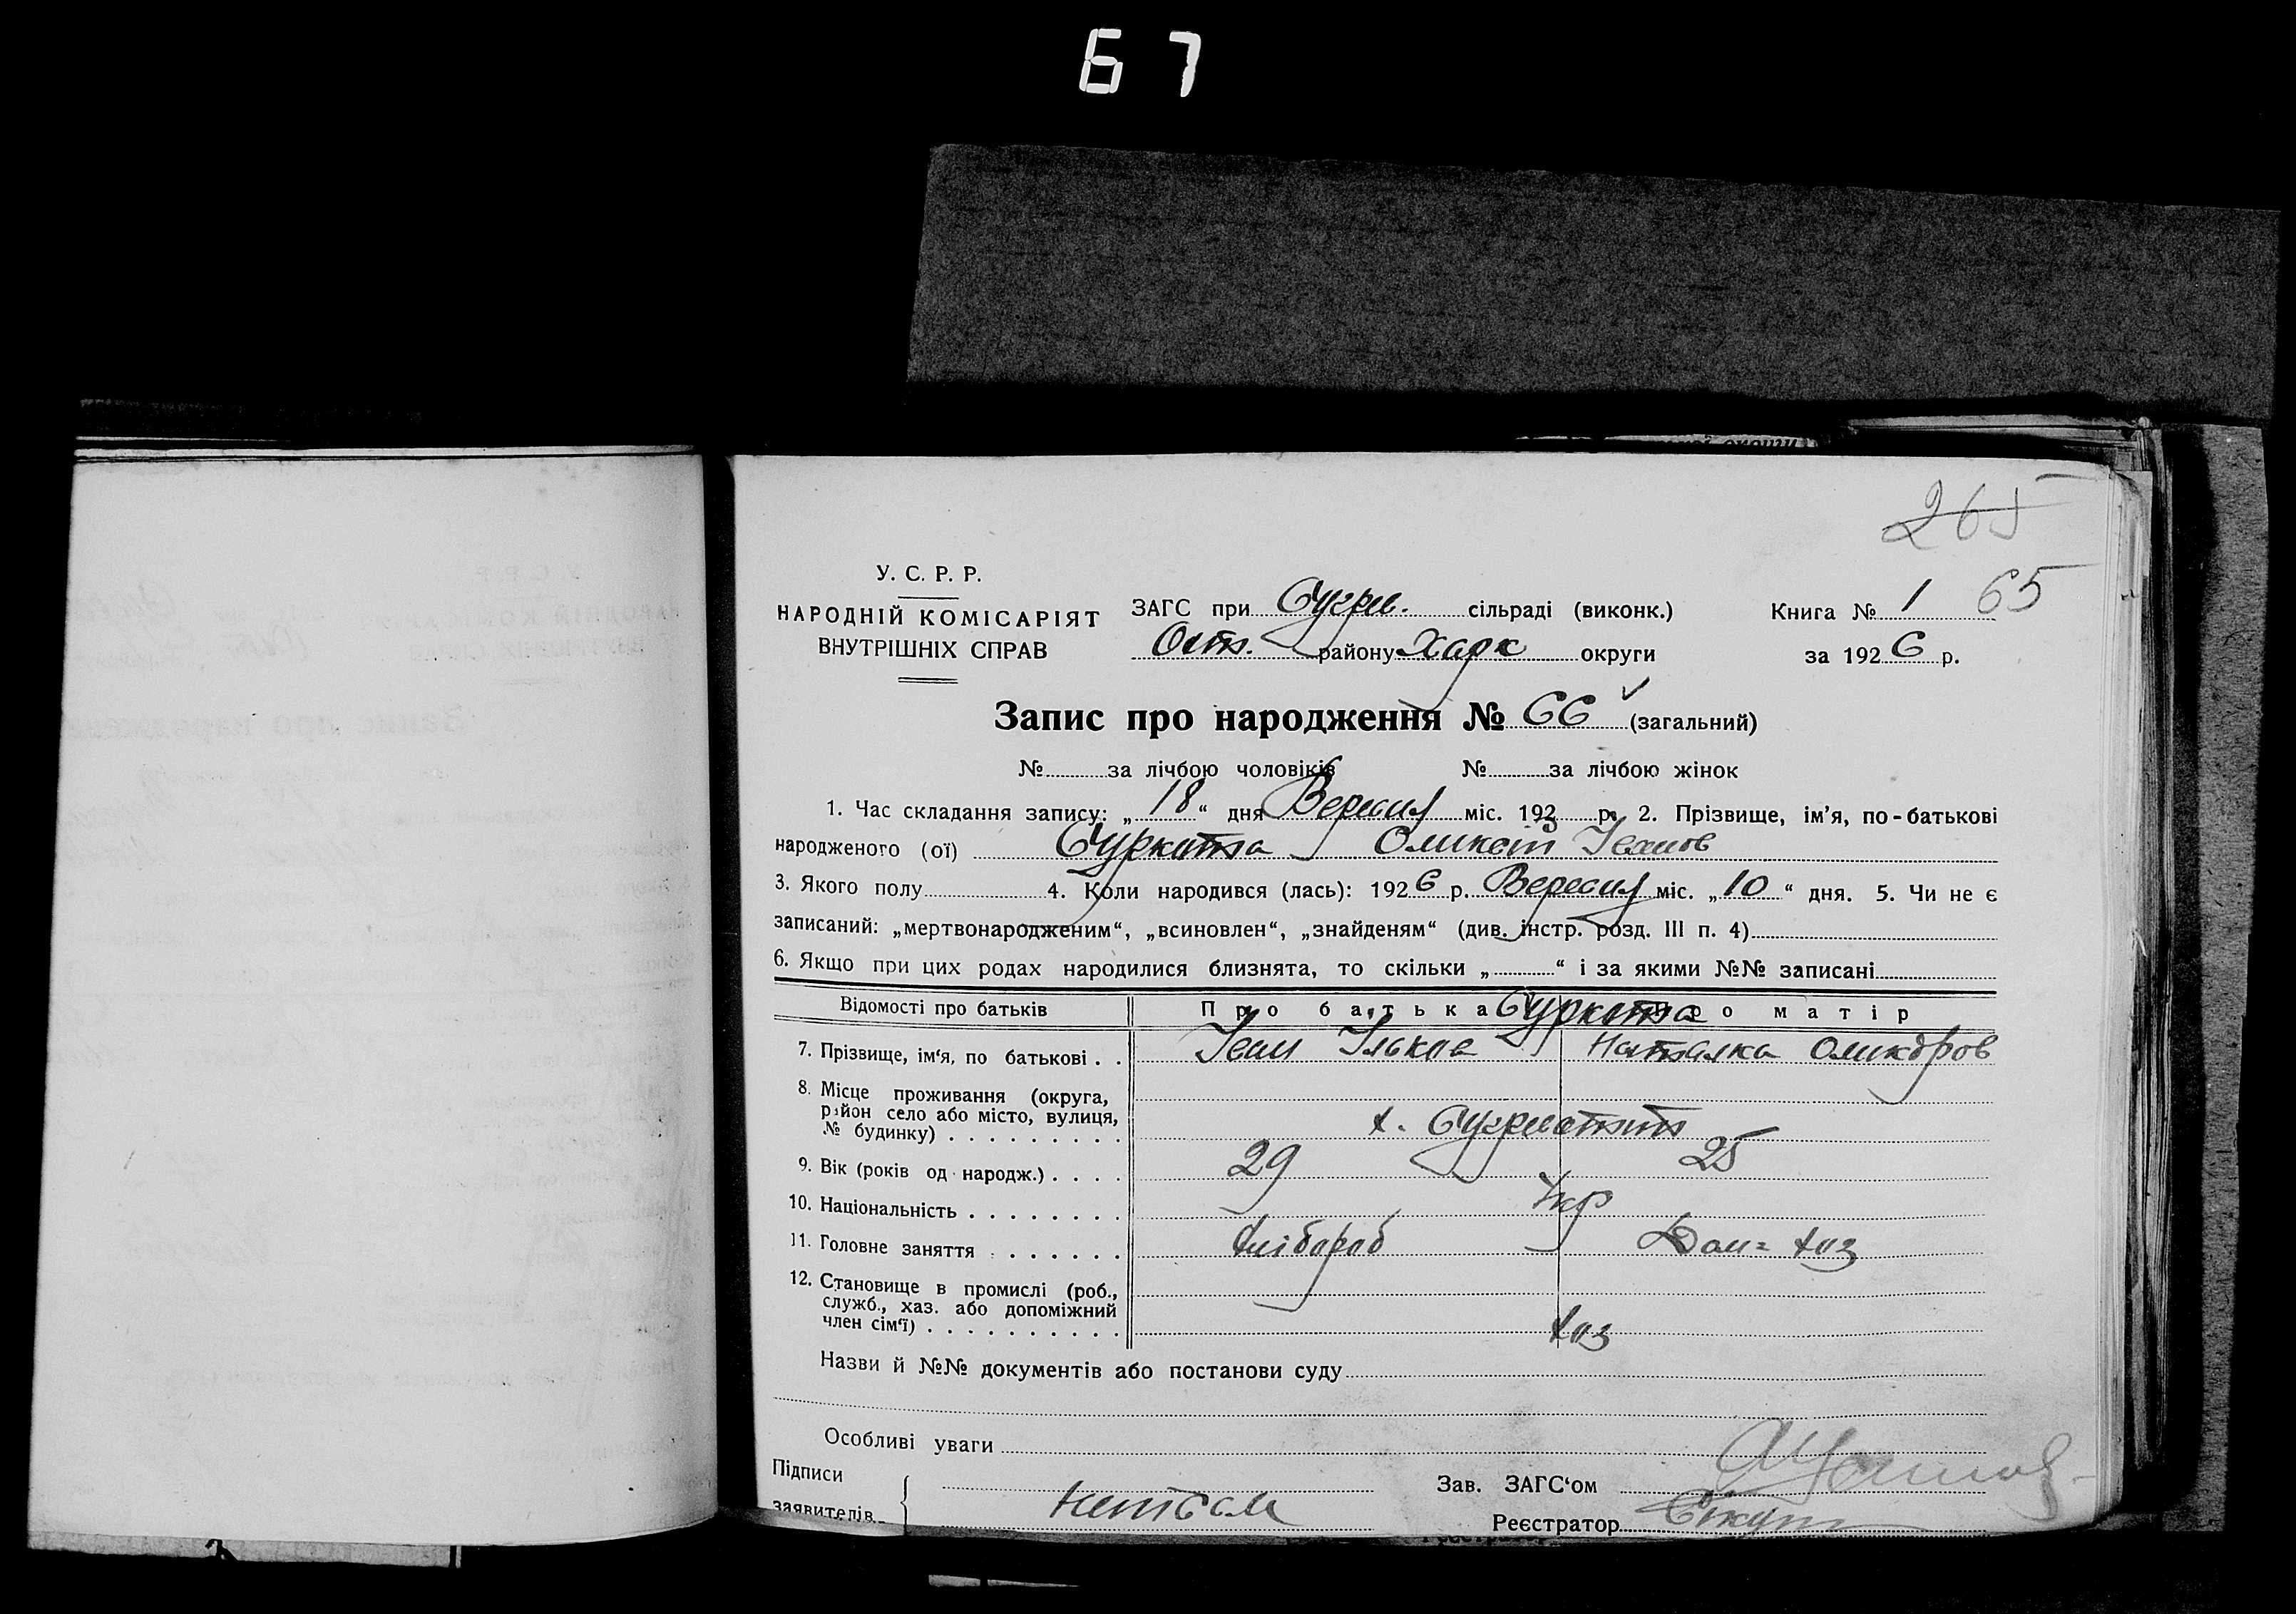 67
265
У. С. Р. Р.
НАРОДНІЙ КОМІСАРІЯТ
ВНУТРІШНІХ СПРАВ
ЗАГС при сільраді (виконк.)
районy Харк округи
Книга № 1 65
за 1926 р.
Запис про народження № 66 (загальний)
№ за лічбою чоловіків № за лічбою жінок
1. Час складання запису: „18“ дня Вересня міс. 192 р. 2. Прізвище, ім'я, по-батькові
народженого (ої) Суркотта Оликсій Іванов
3. Якого полу 4. Коли народився (лась): 1926 р. Вересня міс. „10“ дня. 5. Чи не є
записаний: „мертвонародженим“, „всиновлен“, „знайденям“ (див. інстр. розд. III п. 4)
6. Якщо при цих родах народилися близнята, то скільки „ “ і за якими №№ записані
Відомості про батьків Про батька Про матір
7. Прізвище, ім'я, по батькові . . Іван Ільков Наталка
8. Місце проживання (округа,
район село або місто, вулиця,
№ будинку) . . . . . . . . . х.
9. Вік (років од народж.) . . . . 29 25
10. Національність . . . . . . . . Укр
11. Головне заняття . . . . . . . Хлібороб Дом= хоз
12. Становище в промислі (роб.,
служб., хаз. або допоміжний
член сім'ї) . . . . . . . . . . хоз
Назви й №№ документів або постанови суду
Особливі уваги
Підписи
заявителів
Зав. ЗАГС'ом
Реєстратор